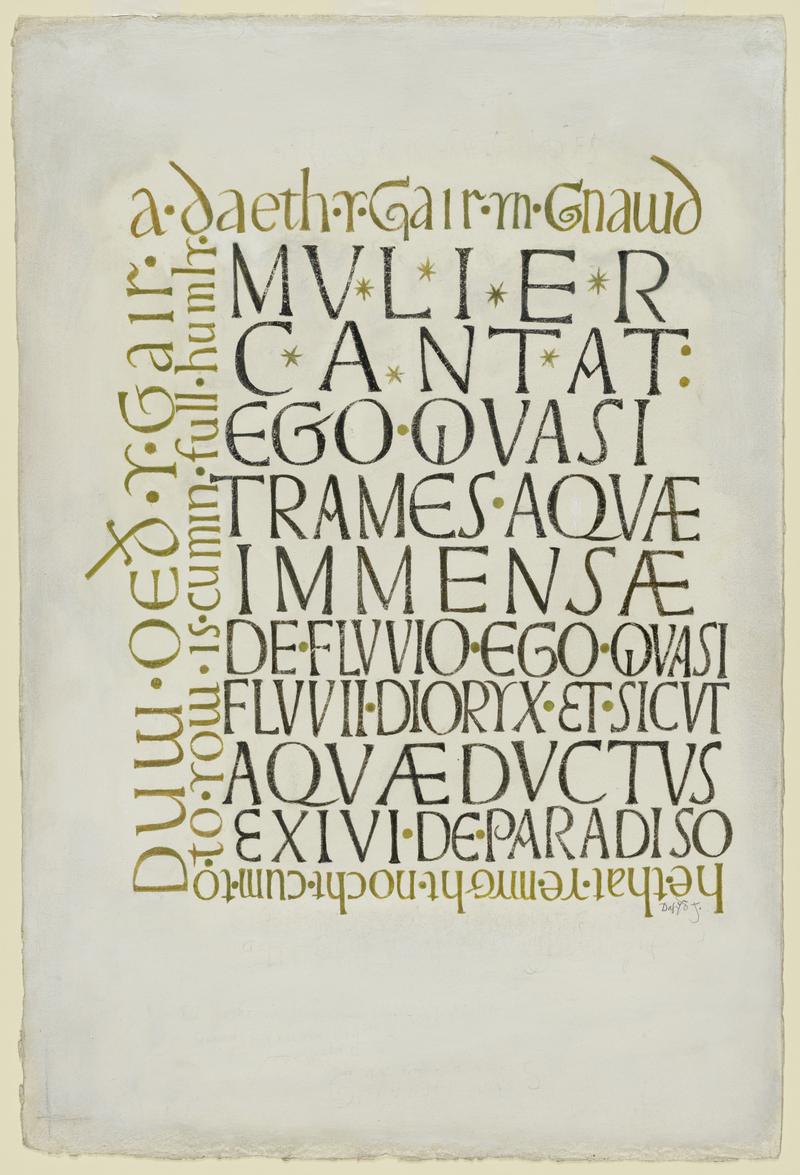 Duw·oeð·y·Gair·
a·daeth·y·Gair·yn·Gnawd
MVLIER
CANTAT:
EGO·QVASI
TRAMES·AQVÆ
IMMENSÆ
DE·FLVVIO·EGO·QVASI
FLVVII·DIORYX·ET·SICVT
AQVÆDVCTVS
EXIVI·DE·PARADISO
he·that·ye·myght·nocht·cum·to·
to·yow·is·cumin·full·humly·
Dafyð J.